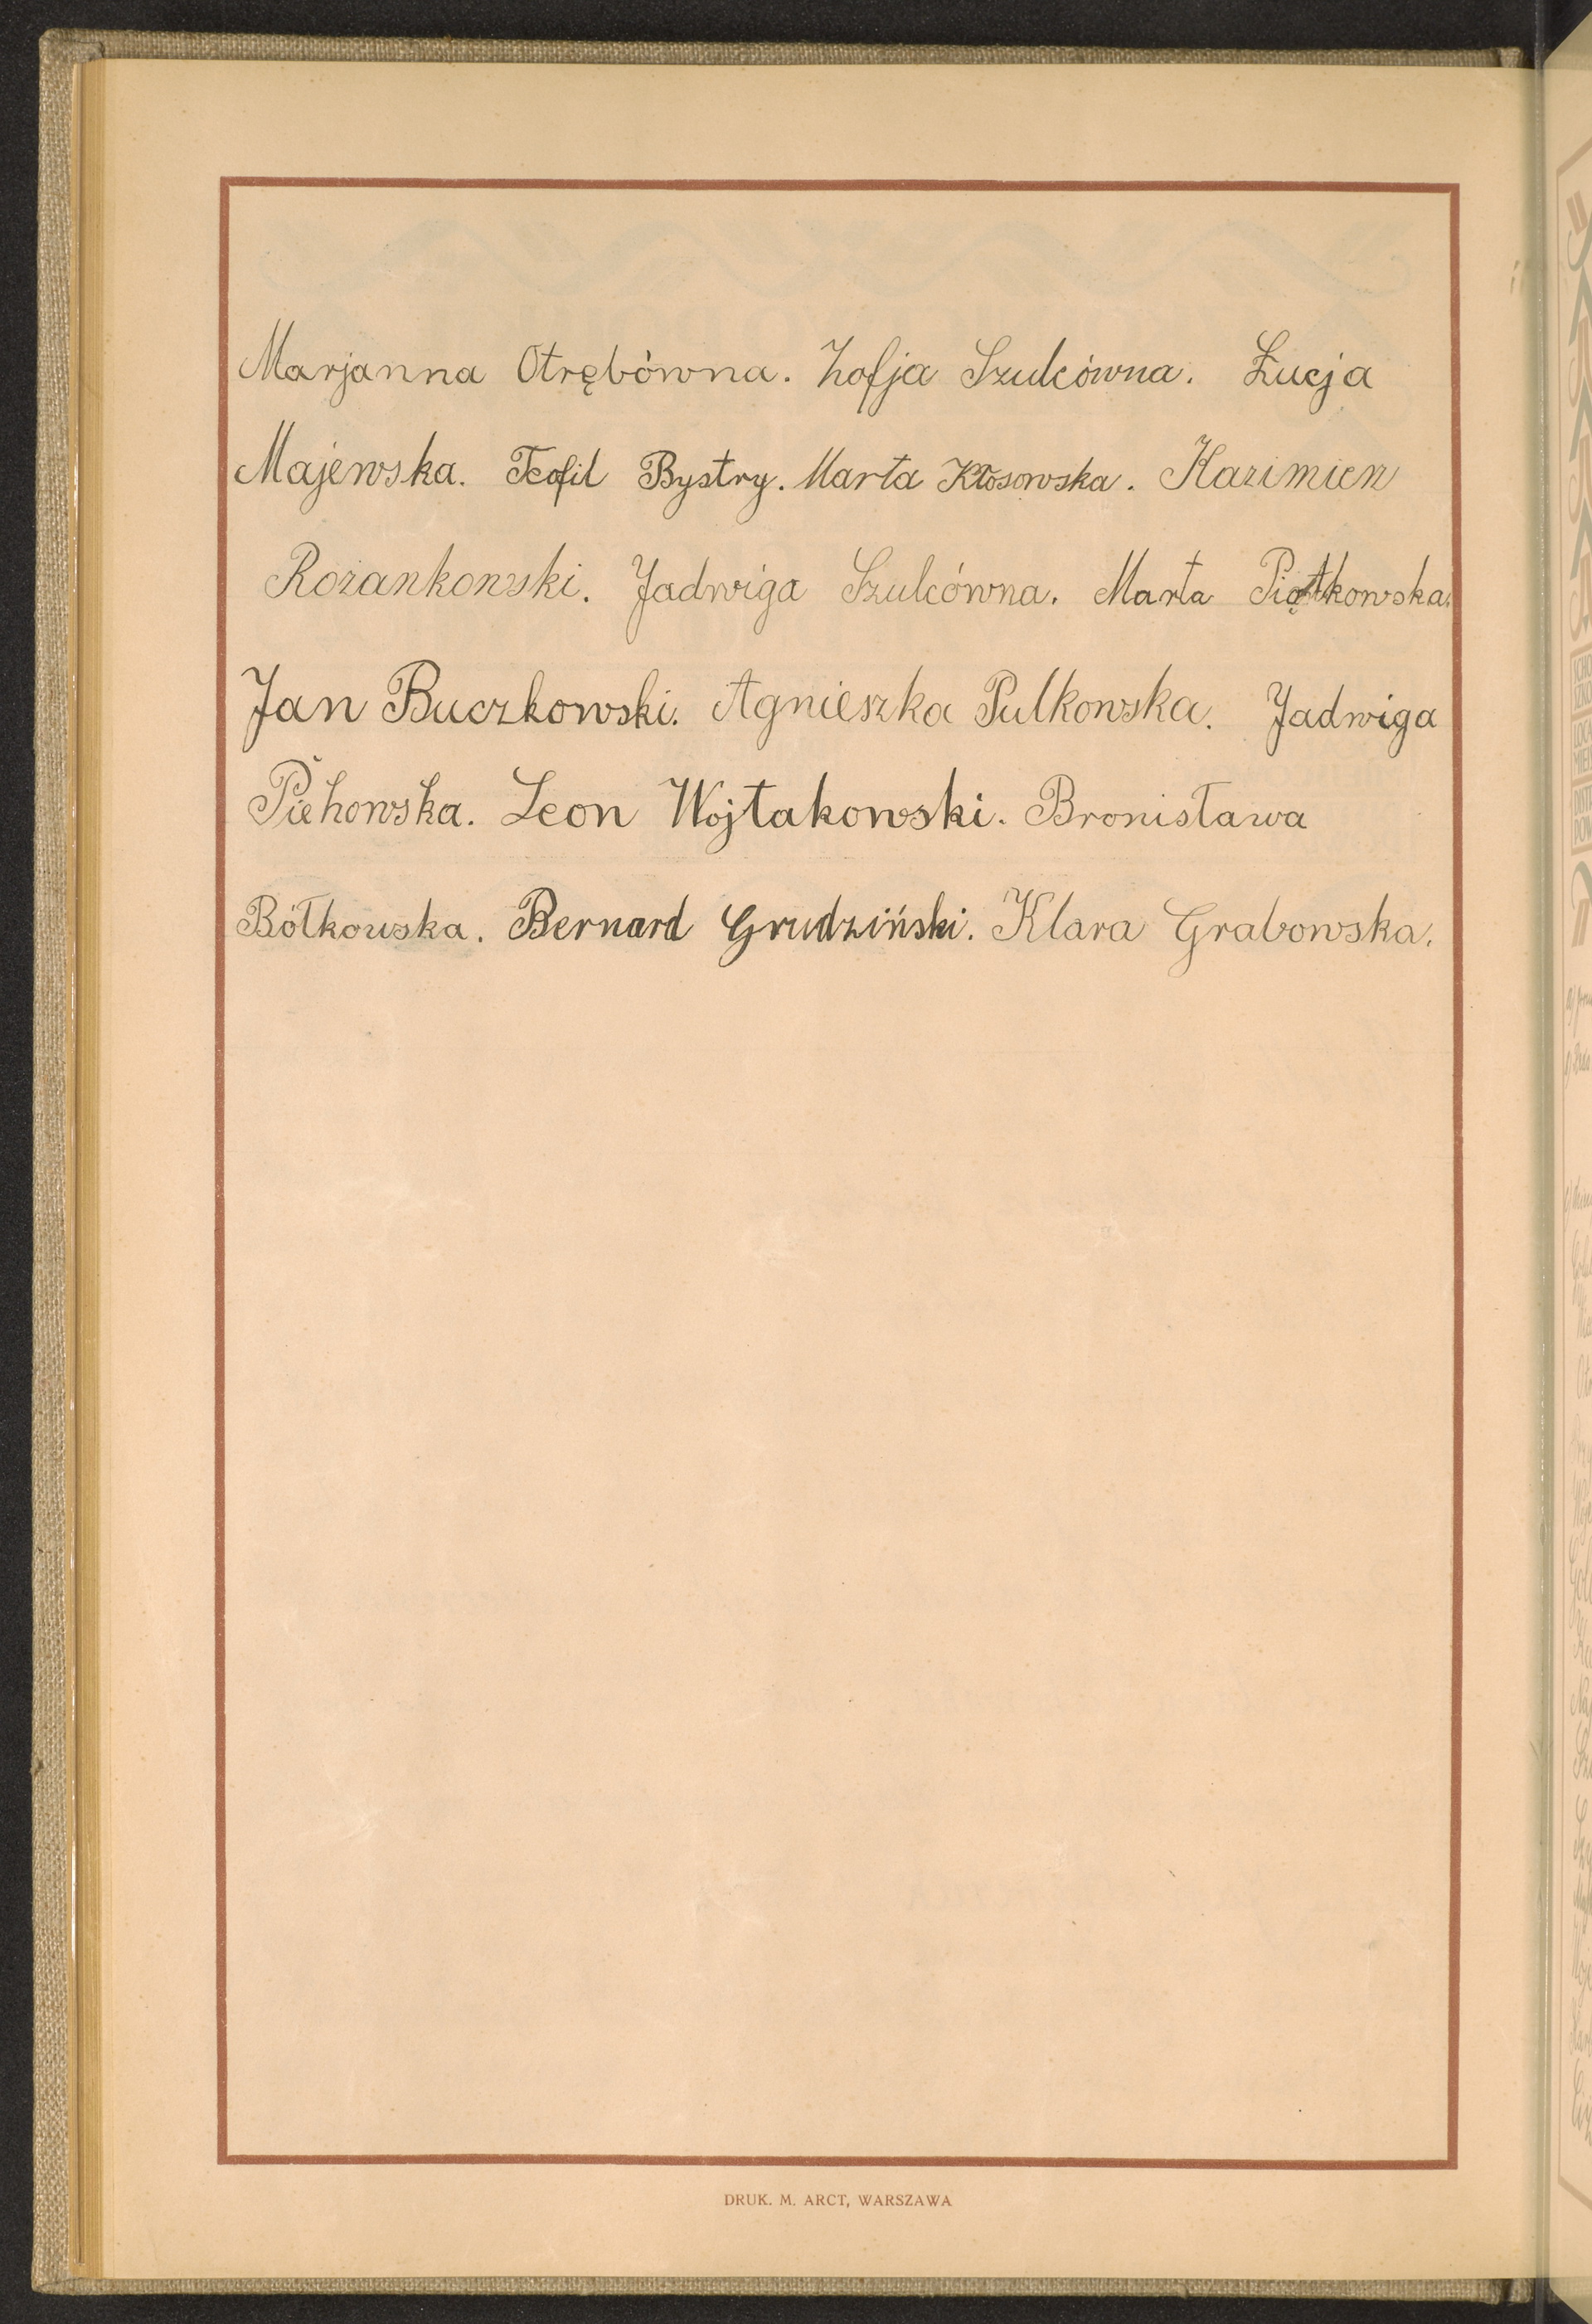 Marjanna Otrębówna. Zofja Szulcówna. Łucja
Majewska. Teofil Bystry. Marta Kłosowska. Kazimierz
Rożankowski. Jadwiga Szulcówna. Marta Piątkowska.
Jan Buczkowski. Agnieszka Pulkowska. Jadwiga
Piehowska. Leon Wojtakowski. Bronisława
Bółkowska. Bernard Grudziński. Klara Grabowska.
DRUK. M. ARCT, WARSZAWA